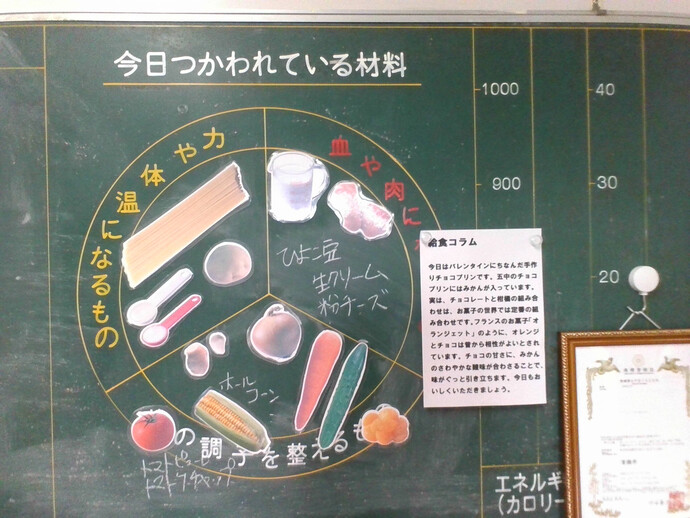 今日つかわれている材料
力や体温になるもの
血や肉に
ひよこ豆
生クリーム
粉チーズ
ホール
コーン
の調子を整えるも
トマトピューレ
トマトケチャップ
1000
900
40
30
20
エネルギ
(カロリー
給食コラム
今日はバレンタインにちなんだ手作
りチョコプリンです。五中のチョコ
プリンにはみかんが入っています。
実は、チョコレートと柑橘の組み合
わせは、お菓子の世界では定番の組
み合わせです。フランスのお菓子「オ
ランジェット」のように、オレンジ
とチョコは昔から相性がよいとされ
ています。チョコの甘さに、みかん
のさわやかな酸味が合わさることで、
味がぐっと引き立ちます。今日もお
いしくいただきましょう。